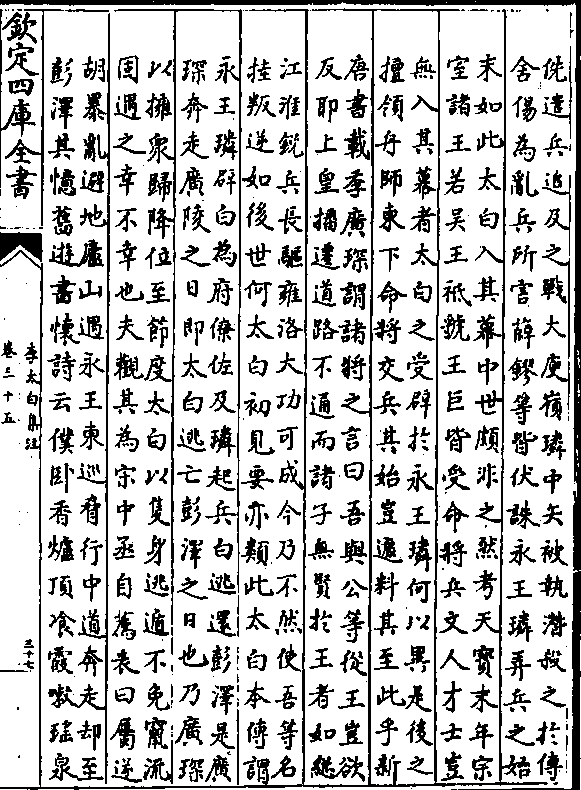 侁遣兵追及之戰大庾嶺璘中矢被執潛殺之於傳
舍傷為亂兵所害薛鏐等皆伏誅永王璘弄兵之始
末如此太白入其幕中世頗非之然考天寶末年宗
室諸王若吳王祗虢王巨皆受命將兵文人才士豈
無入其幕者太白之受辟於永王璘何以異是後之
擅領舟師東下命將交兵其始豈遽料其至此乎新
唐書載季廣琛謂諸將之言曰吾與公等從王豈欲
反耶上皇播遷道路不通而諸子無賢於王者如總
江淮銳兵長驅雍洛大功可成今乃不然使吾等名
挂叛逆如後世何太白初見要亦類此太白本傳謂
永王璘辟白為府僚佐及璘起兵白逃還彭澤是廣
琛奔走廣陵之日即太白逃亡彭澤之日也乃廣琛
以擁衆歸降位至節度太白以隻身逃遁不免竄流
固遇之幸不幸也夫觀其為宋中丞自薦表曰屬逆
胡暴亂避地廬山遇永王東巡脅行中道奔走却至
彭澤其憶舊遊書懷詩云僕卧香爐頂飡霞嗽瑤泉
欽定四庫全書
李太白集注
卷三十五
三十七